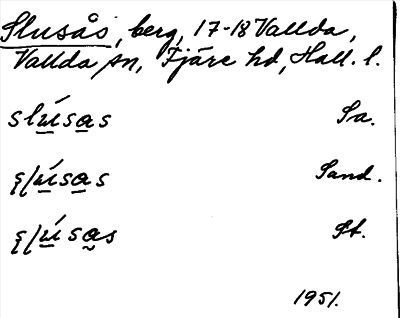 Slusås, berg, 17-18 Vallda,
Vallda sn, Fjäre hd, Hall. l.
slú̲sa̲s Sa.
ʂɭú̲sa̲s Sand.
ʂɭú̲sa̰s St.
1951.